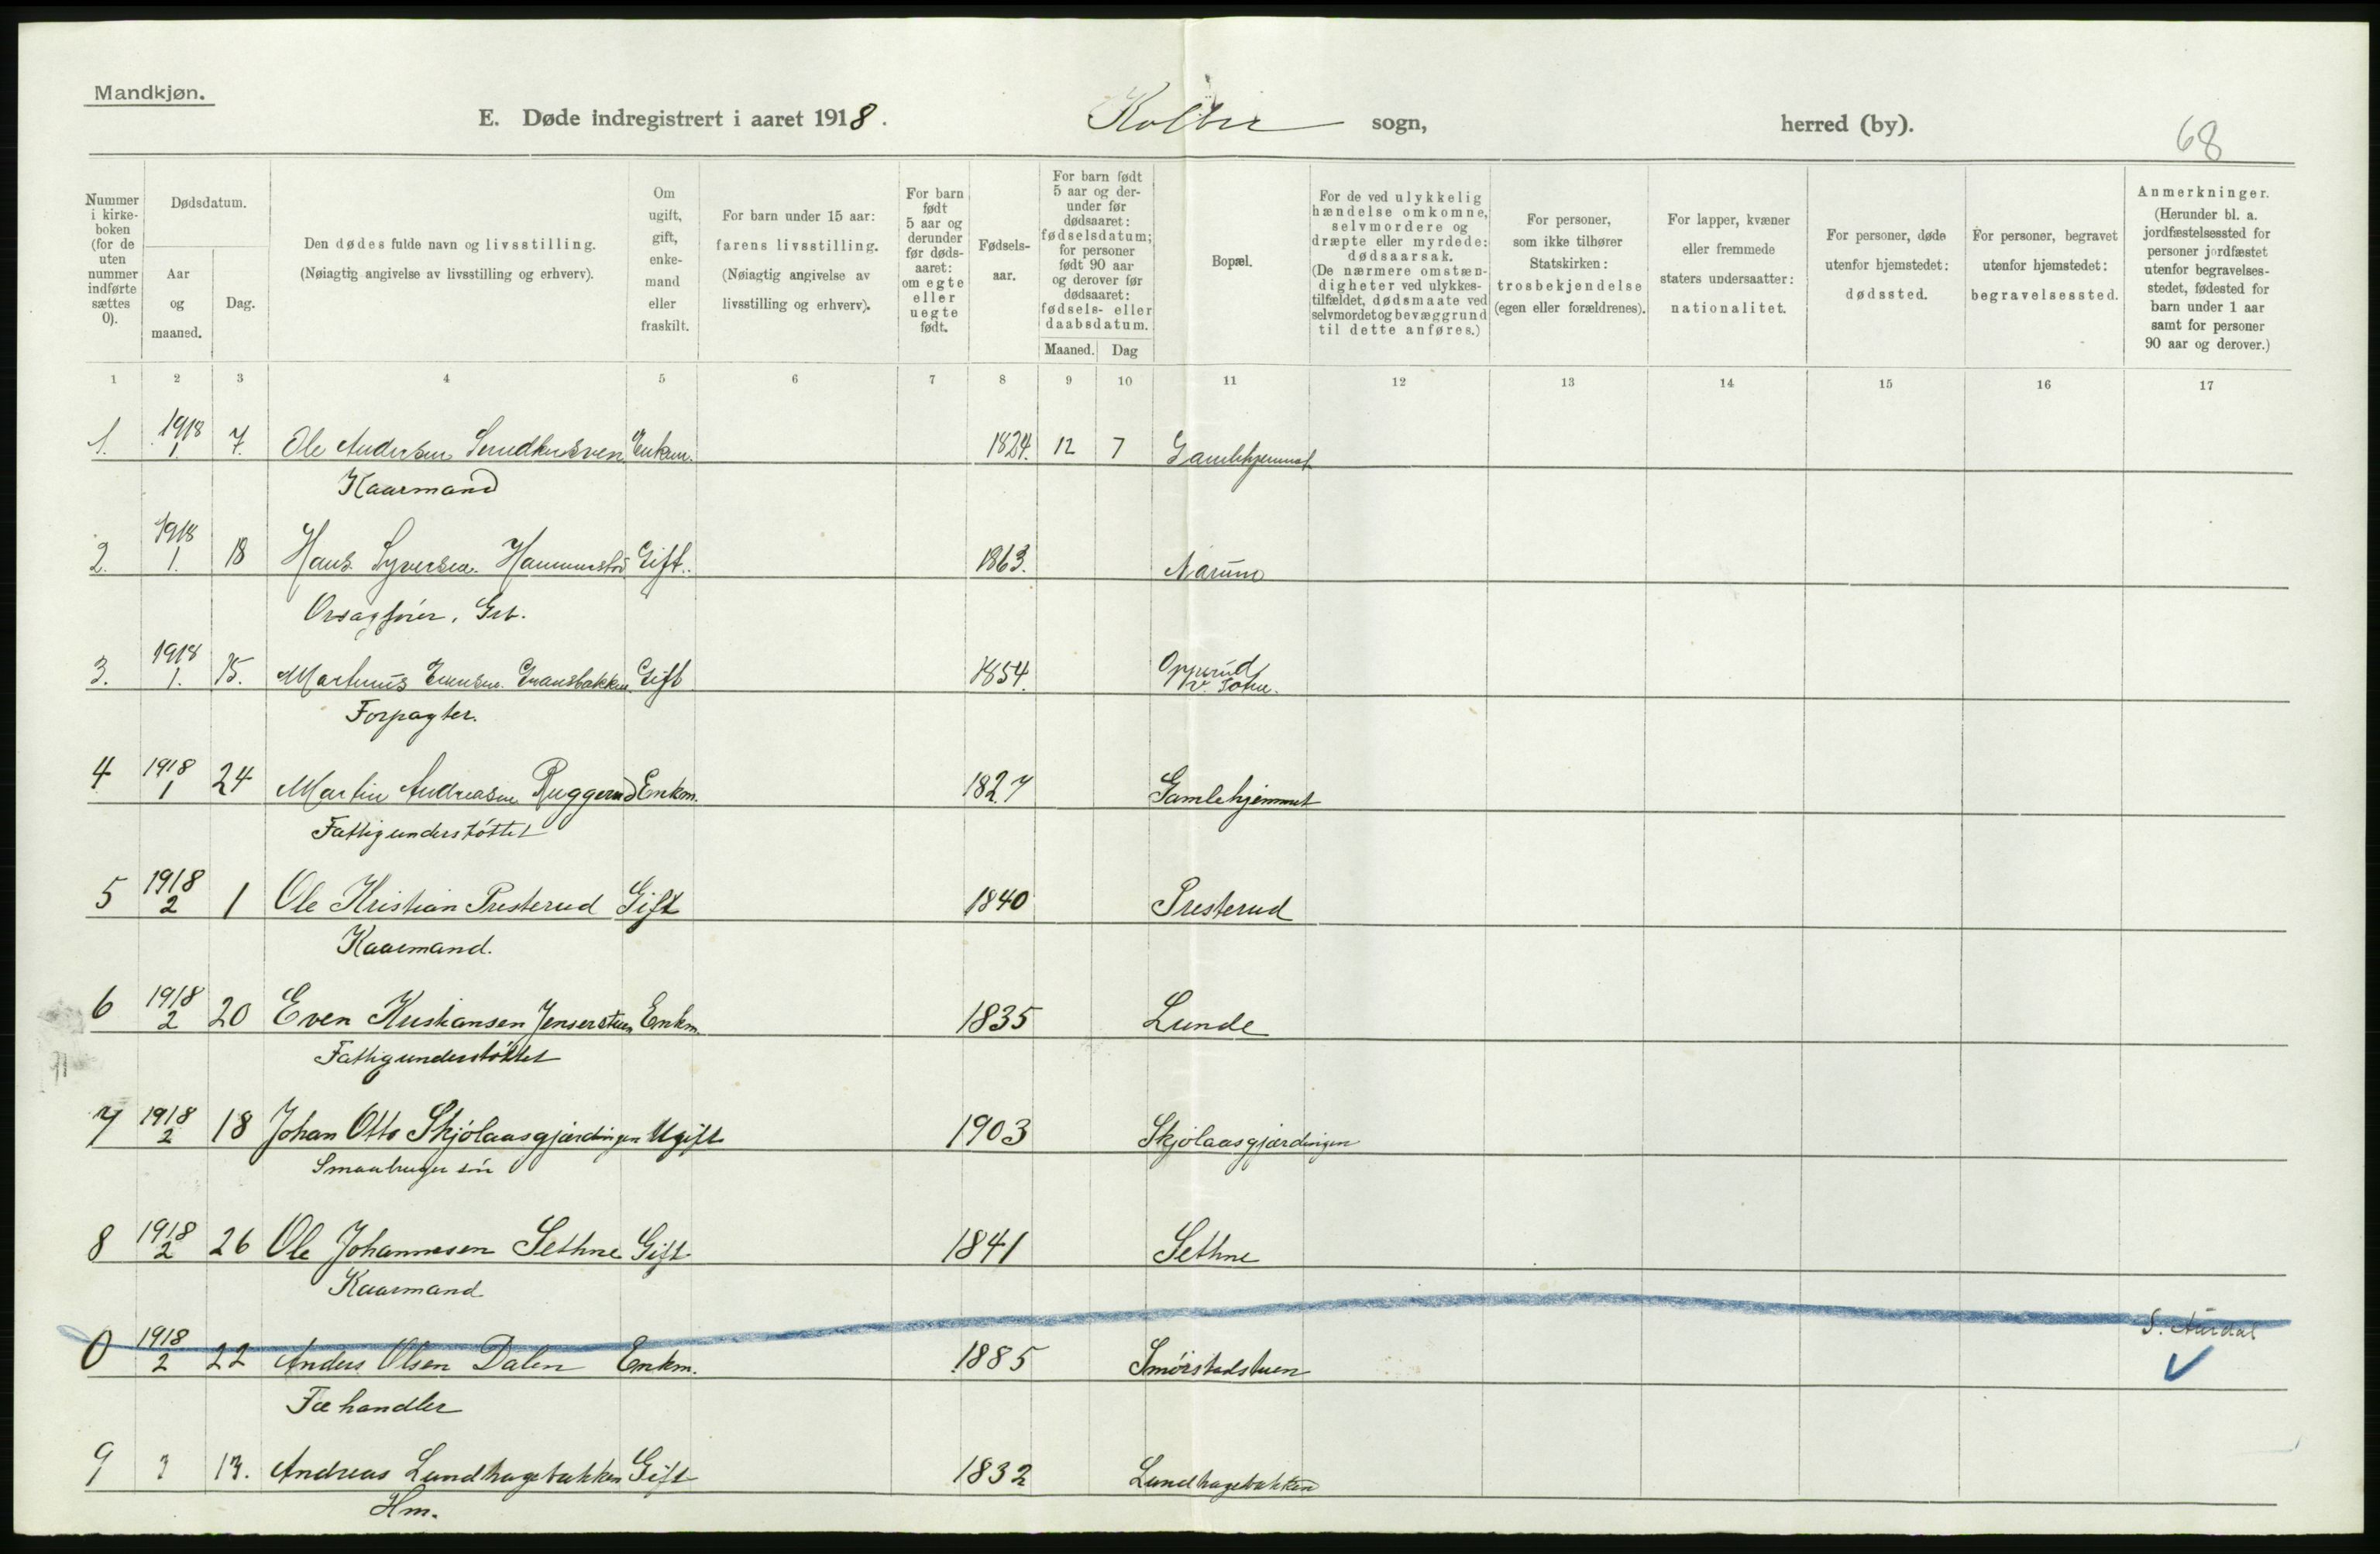 Mandkjøn.
E. Døde indregistrert i aaret 1918. Kolbu sogn, herred (by).
68
Nummer i kirke-boken (for de uten nummer indførte sættes 0).
Dødsdatum.
Aar og maaned.
Dag.
Den dødes fulde navn og livsstilling.
(Nøiagtig angivelse av livsstilling og erhverv).
Om ugift, gift, enke-mand eller fraskilt.
For barn under 15 aar: farens livsstilling.
(Nøiagtig angivelse av livsstilling og erhverv).
For barn født 5 aar og derunder før døds-aaret: om egte eller uegte født.
Fødsels-aar.
For barn født 5 aar og der-under før dødsaaret: fødselsdatum; for personer født 90 aar og derover før dødsaaret: fødsels- eller daabsdatum.
Maaned. Dag
Bopæl.
For de ved ulykkelig hændelse omkomne, selvmordere og dræpte eller myrdede: dødsaarsak.
(De nærmere omstæn-digheter ved ulykkes-tilfældet, dødsmaate ved selvmordet og bevæggrund til dette anføres.)
For personer, som ikke tilhører Statskirken: trosbekjendelse (egen eller forældrenes).
For lapper, kvæner eller fremmede staters undersaatter: nationalitet.
For personer, døde utenfor hjemstedet: dødssted.
For personer, begravet utenfor hjemstedet: begravelsessted.
Anmerkninger.
(Herunder bl. a. jordfæstelsessted for personer jordfæstet utenfor begravelses-stedet, fødested for barn under 1 aar samt for personer 90 aar og derover.)
1 2 3 4 5 6 7 8 9 10 11 12 13 14 15 16 17
1. 1918 1. 7. Ole Andersen Enkem. 1824. 12 7 Gamlehjemmet
Kaarmand
2. 1918 1. 18 Hans Syversen Hammerstad Gift. 1863. Narum
Grb.
3. 1918 1. 15. Martinus Evensen Gransbakken Gift 1854. Opperud v. Toten.
Forpagter.
4 1918 1 24 Martin Andreasen Ruggerud Enkm. 1827 Gamlehjemmet
Fattigunderstøttet
5 1918 2 1 Ole Kristian Presterud Gift 1840 Presterud
Kaarmand.
6 1918 2 20 Even Kristiansen Jenserstuen Enkm. 1835 Lunde
Fattigunderstøttet
7 1918 2 18 Johan Otto Skjølaasgjærdingen Ugift 1903 Skjølaasgjærdingen
Smaabruger søn
8 1918 2 26 Ole Johannesen Sethne Gift 1841 Sethne
Kaarmand
0 1918 2 22 Anders Olsen Dalen Enkm. 1885 Smørstadstuen S. Aurdal
Fæhandler
9 3 13. Andreas Lundhagebakken Gift 1832 Lundhagebakken
Hm.